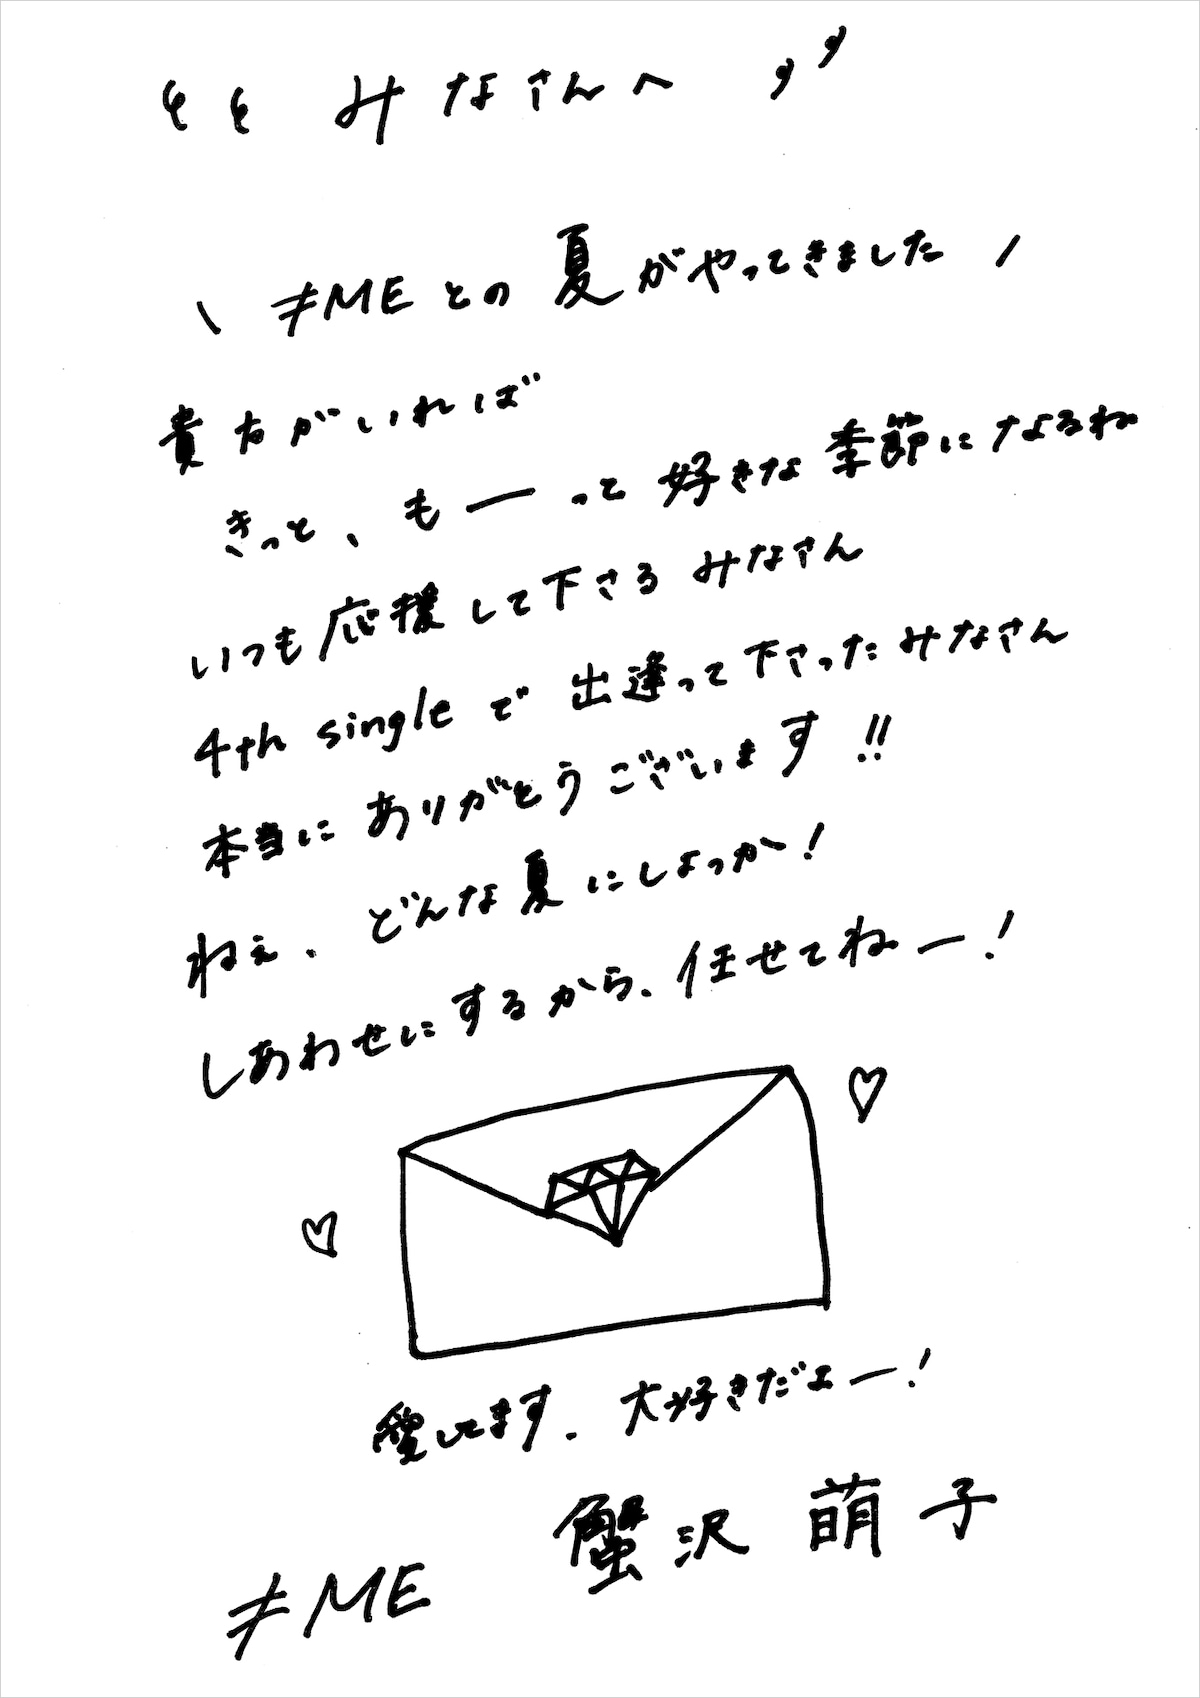 “ みなさんへ ”
\ ≠MEとの夏がやってきました /
貴方がいれば
きっと、もーって好きな季節になるね
いつも応援して下さるみなさん
4th singleで出逢って下さったみなさん
本当にありがとうございます!!
ねぇ、どんな夏にしよっか!
しあわせにするから、任せてねー!
愛してます、大好きだよー!
≠ME 蟹沢 萌子